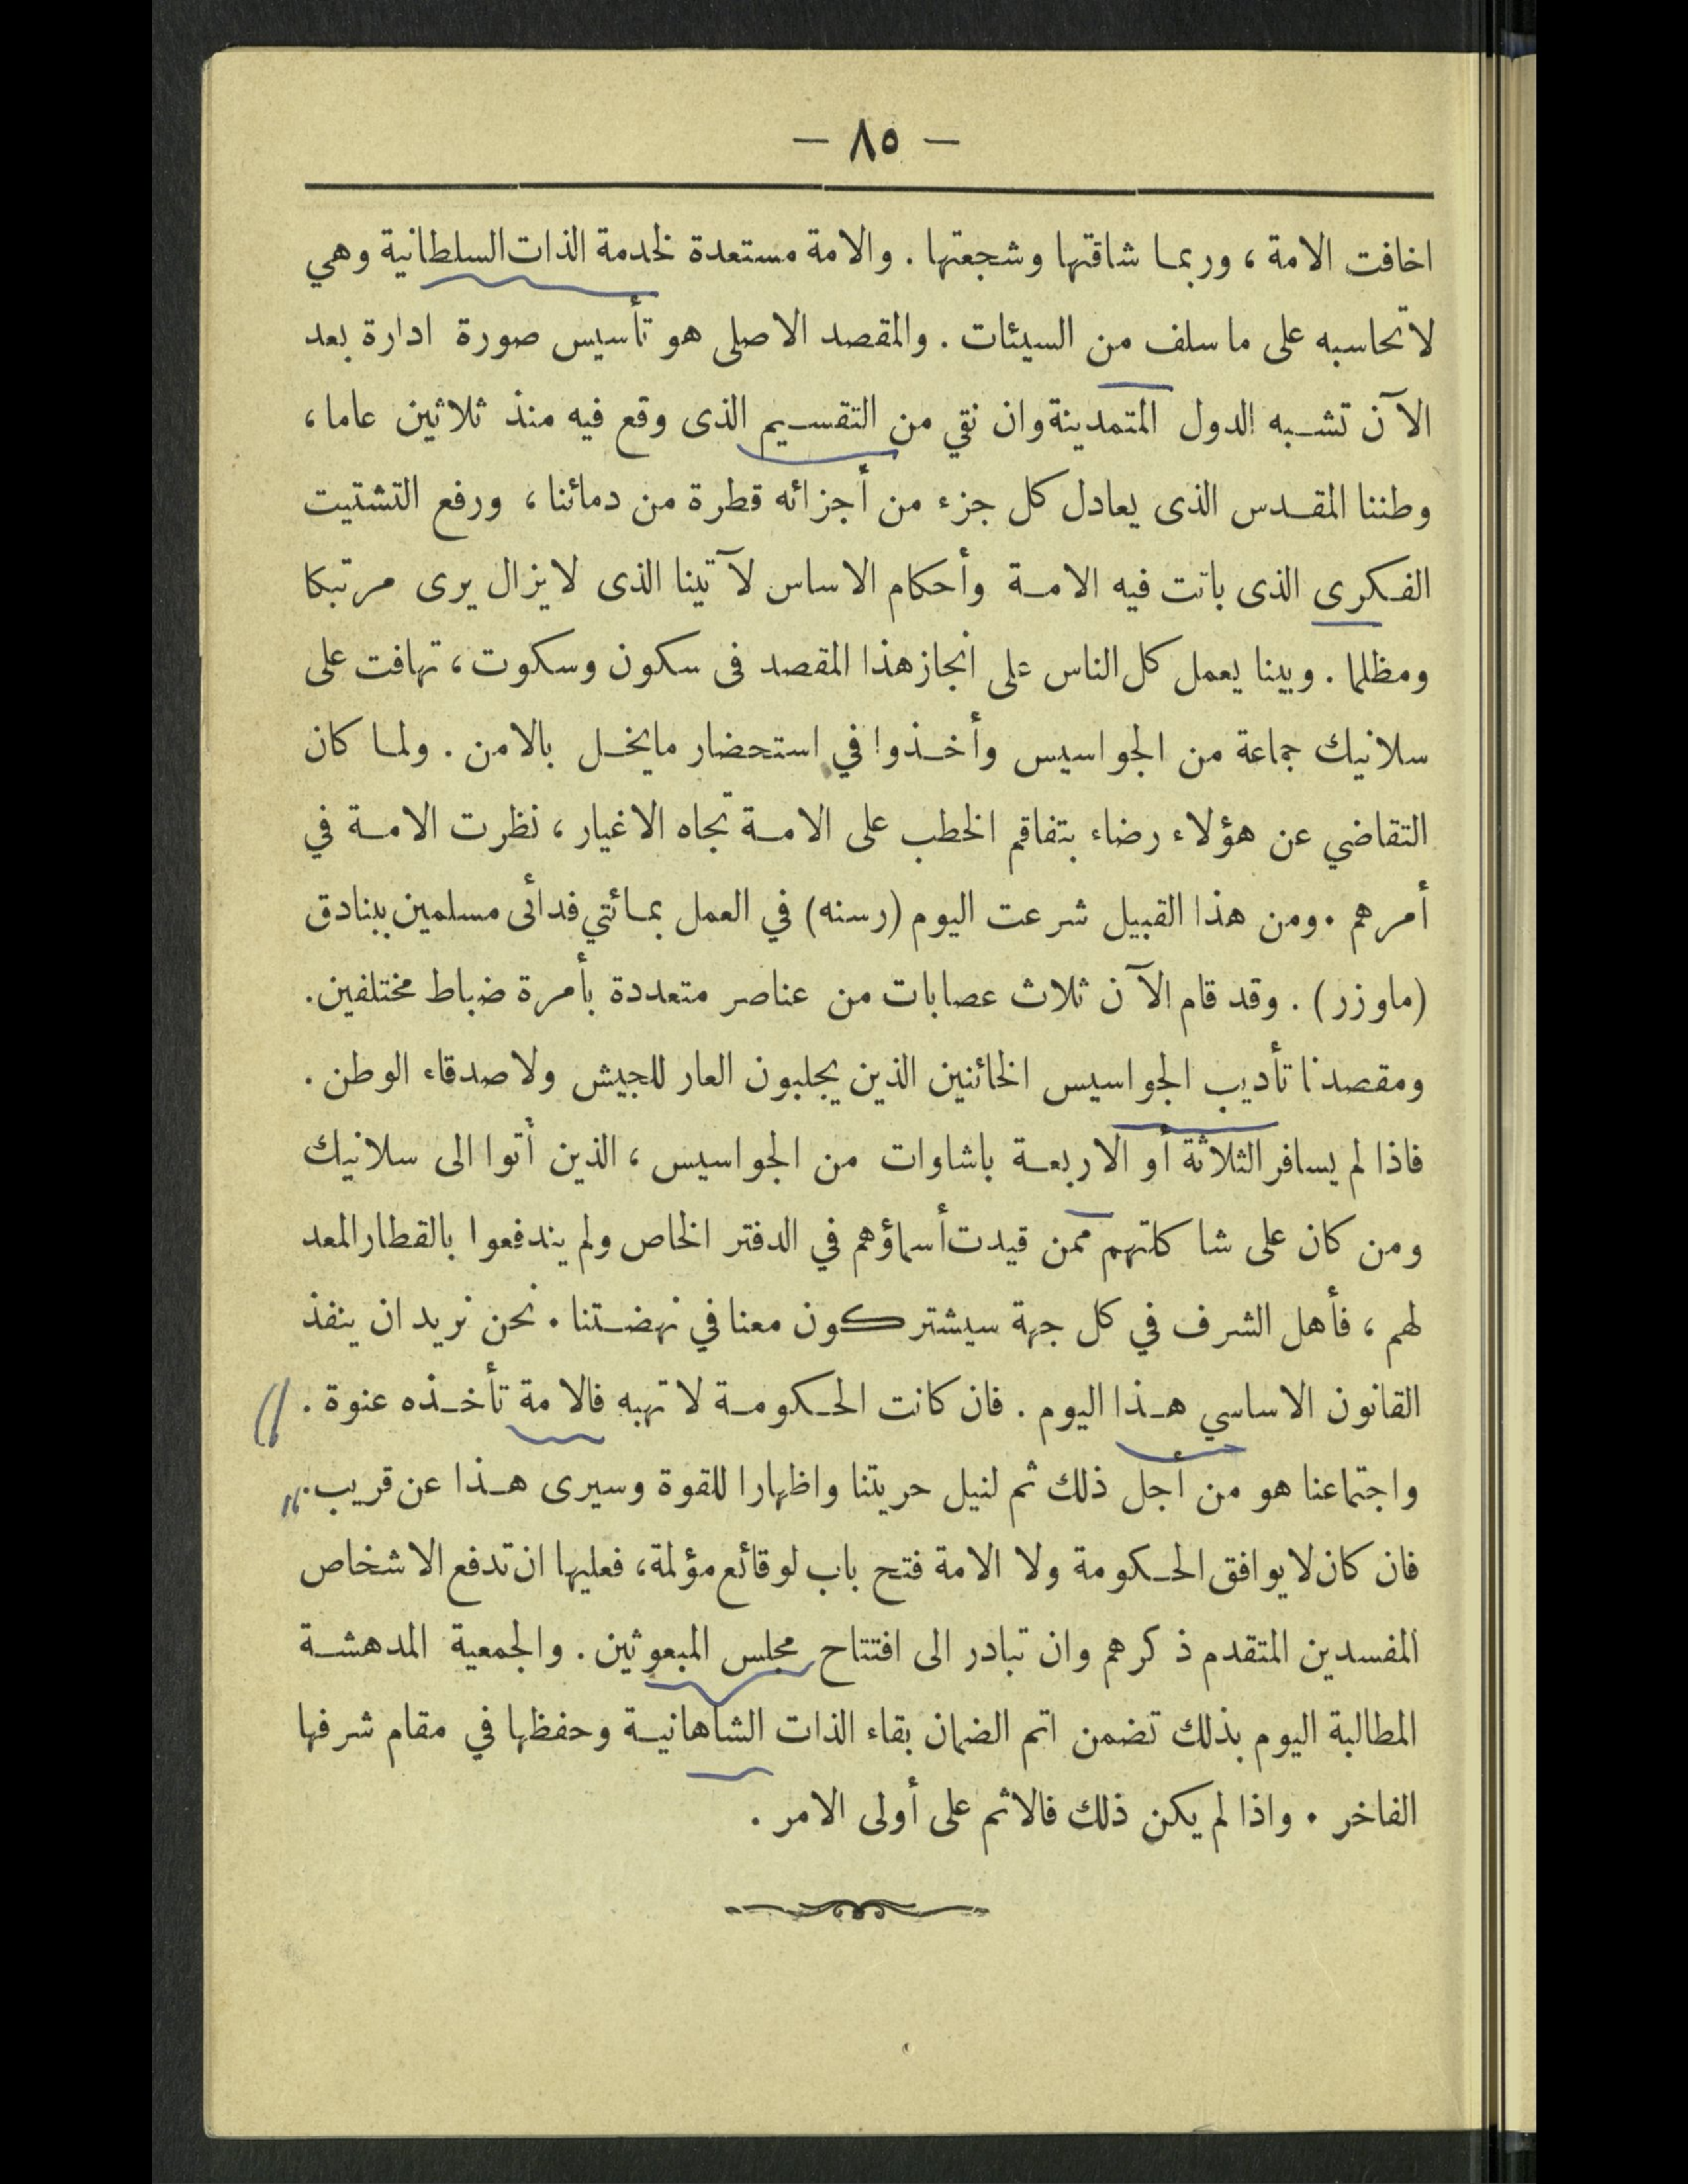 — ٨٥ —
اخافت الامة ، وربمـا شاقتها وشجعتها . والامة مستعدة لخدمة الذات السلطانية وهي
لا تحاسبه على ما سلف من السيئات . والمقصد الاصلى هو تأسيس صورة ادارة بعد
الآن تشبه الدول المتمدينة وان نقي من التقسيم الذى وقع فيه منذ ثلاثين عاما ،
وطننا المقدس الذى يعادل كل جزء من أجزائه قطرة من دمائنا ، ورفع التشتيت
الفكرى الذى باتت فيه الامة وأحكام الاساس لآتينا الذى لا يزال يرى مرتبكا
ومظلما . وبينا يعمل كل الناس على انجاز هذا المقصد فى سكون وسكوت ، تهافت على
سلانيك جماعة من الجواسيس وأخذوا في استحضار ما يخل بالامن . ولما كان
التقاضي عن هؤلاء رضاء بتفاقم الخطب على الامة تجاه الاغيار ، نظرت الامة في
أمرهم . ومن هذا القبيل شرعت اليوم (رسنه) في العمل بمائتي فدائى مسلمين ببنادق
(ماوزر) . وقد قام الآن ثلاث عصابات من عناصر متعددة بأمرة ضباط مختلفين .
ومقصدنا تأديب الجواسيس الخائنين الذين يجلبون العار للجيش ولاصدقاء الوطن .
فاذا لم يسافر الثلاثة أو الاربعة باشاوات من الجواسيس ، الذين أتوا الى سلانيك
ومن كان على شاكلتهم ممن قيدت أسماؤهم في الدفتر الخاص ولم يندفعوا بالقطار المعد
لهم ، فأهل الشرف في كل جهة سيشتركون معنا في نهضتنا . نحن نريد ان ينفذ
القانون الاساسي هذا اليوم . فان كانت الحكومة لا تهبه فالامة تأخذه عنوة .
واجتماعنا هو من أجل ذلك ثم لنيل حريتنا واظهارا للقوة وسيرى هذا عن قريب .
فان كان لا يوافق الحكومة ولا الامة فتح باب لوقائع مؤلمة ، فعليها ان تدفع الاشخاص
المفسدين المتقدم ذكرهم وان تبادر الى افتتاح مجلس المبعوثين . والجمعية المدهشة
المطالبة اليوم بذلك تضمن اتم الضمان بقاء الذات الشاهانية وحفظها في مقام شرفها
الفاخر . واذا لم يكن ذلك فالاثم على أولى الامر .